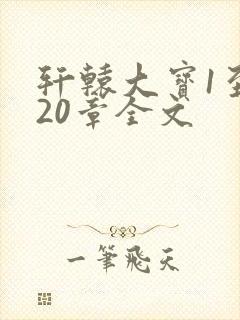 轩辕大宝1至
20章全文
一筆飛天